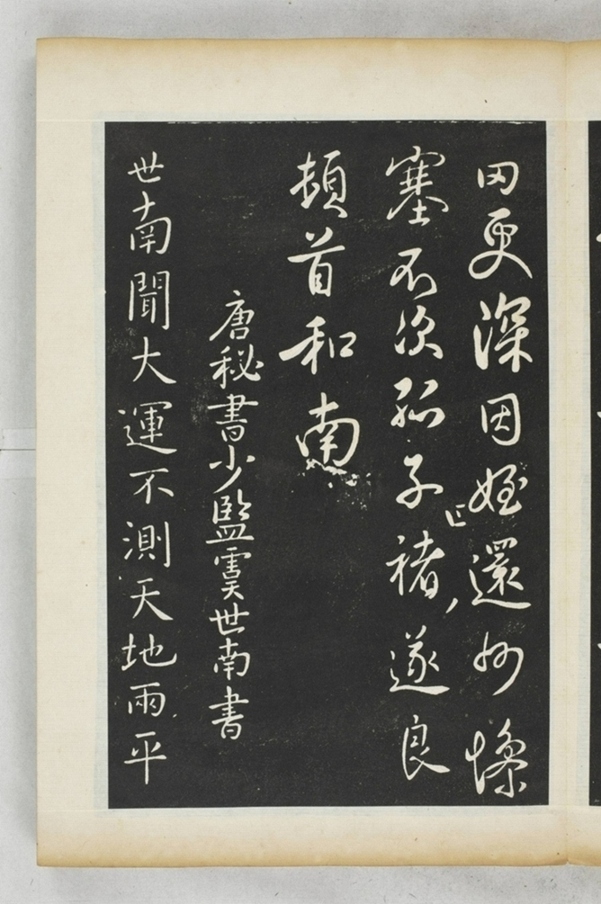 更深因姪還州慘
塞不次孤子褚遂良
頓首和南
唐秘書少監虞世南書
世南聞大運不測天地兩平